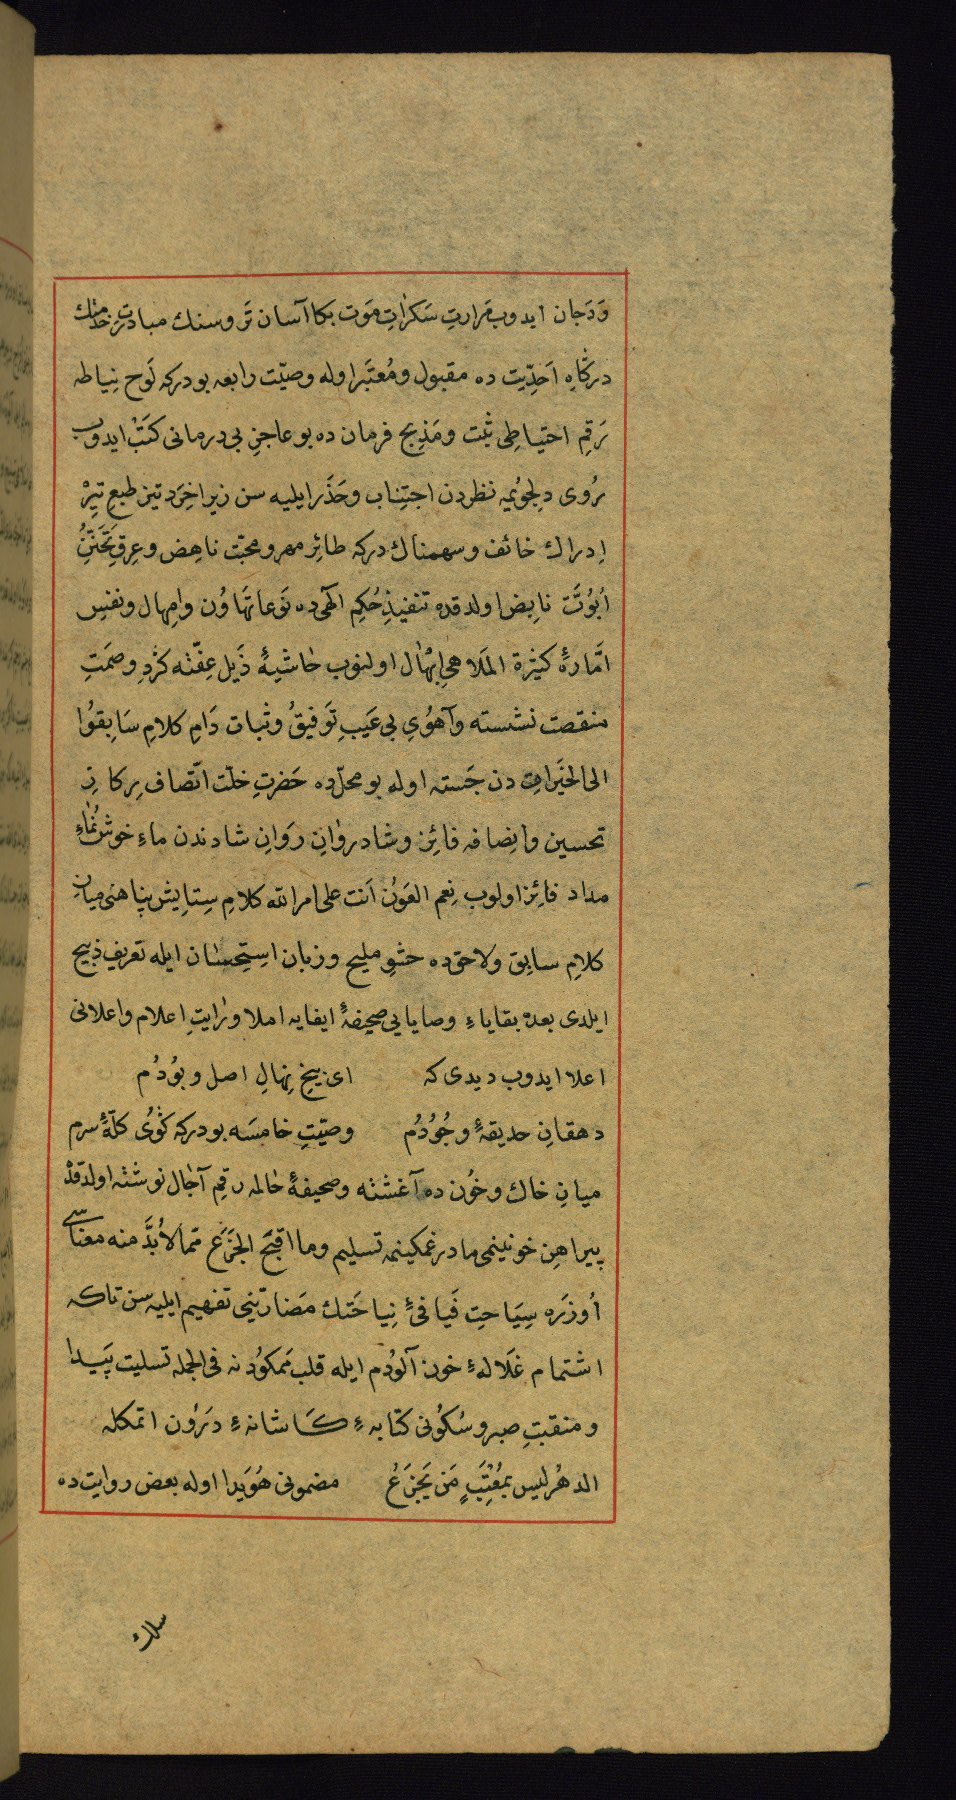 وَدَجان ایدوب مَرارتِ سَکراتِ مَوت بکا آسان تَر وسنك مبادرتِ خدمتك
درکاهِ اَحَدِیّت ده مقبول ومُعتَبَر اوله وصیّت رابعه بودرکه لَوح نِیاطه
رَقِمِ احتیاطی ثبْت ومَذبحِ فرمان ده بو عاجزِ بی درمانی کَتْب ایدوب
رُوی دِلجویُمِه نظردن اجتِناب وحَذَر ایلیه سن زیرا خِرَد تیز طبعِ تیزْ
اِدراك خائف وسهمناك درکه طائِر مهر ومحبّت ناهِض وعِرقِ تَحَنّنُ
اُبُوَّت نابِض اولدقده تنفیذِ حُکمِ الٓهی ده نَوعا تَهاوُن واِمهال ونفسِ
امَّارۀٔ کثیرة المَلاهی اِبْهال اولنوب حاشیهٔ ذَیل عِفّتنه کَردِ وصمَتِ
منقصت نشسته وآهُویِ بی عَیبِ تَوفیقُ وثبات دَامِ کلامِ سَابِقُوا
الی الخَیَراتِ دن جَسته اوله بو محلّ ده حَضرتِ خلّت اتّصاف برکاتِ
تحسین وانِصافه فائِز وشادروانِ رَوانِ شادندن ماءِ خوش نُمَاءِ
مداد فائِز اولوب نِعم العَوْن اَنت علی امر الله کلامِ سِتایِش پناهنی میانِ
کلامِ سابِق ولاحق ده حشوِ ملیح وزبان اِستِحسان ایله تعریفِ ذبیح
ایلدی بعده بقایاءِ وصایایی صحیفهٔ ایفایه املا ورایتِ اعلام واعلانی
اعلا ایدوب دیدی که ای بیخِ نِهالِ اصل وبوُدُم
دهقانِ حدیقهٔ وجُوُدُم وصیّتِ خامسَه بودرکه کوُیُ کلّهٔ سرم
میانِ خاك وخُون ده آغشته وصحیفهٔ حالمه رقمِ آجال نوشته اولدقدْ
پیراهِن خونینمی مادر غمکینمه تسلیم وما اقبَحَ الجَزَعَ ممّا لاُبدَّ منه معناسی
اُوزَره سِیَاحتِ فَیافیٔ نِیاحَتك مَضارّتینی تفهیم ایلیه سن تاکه
اشتمام غَلَالهٔ خون آلودُم ایله قلب مَمکوُدنه فی الجمله تسلیت پَیدا
ومنقبتِ صبر وسُکوُنی کتابهٔ کَاشانهٔ دَرُون اتمکله
الدهْر لیس بمُعْتِبٍ مَن یَجزَعُ مضمونی هُوَیدا اوله بعض روایت ده